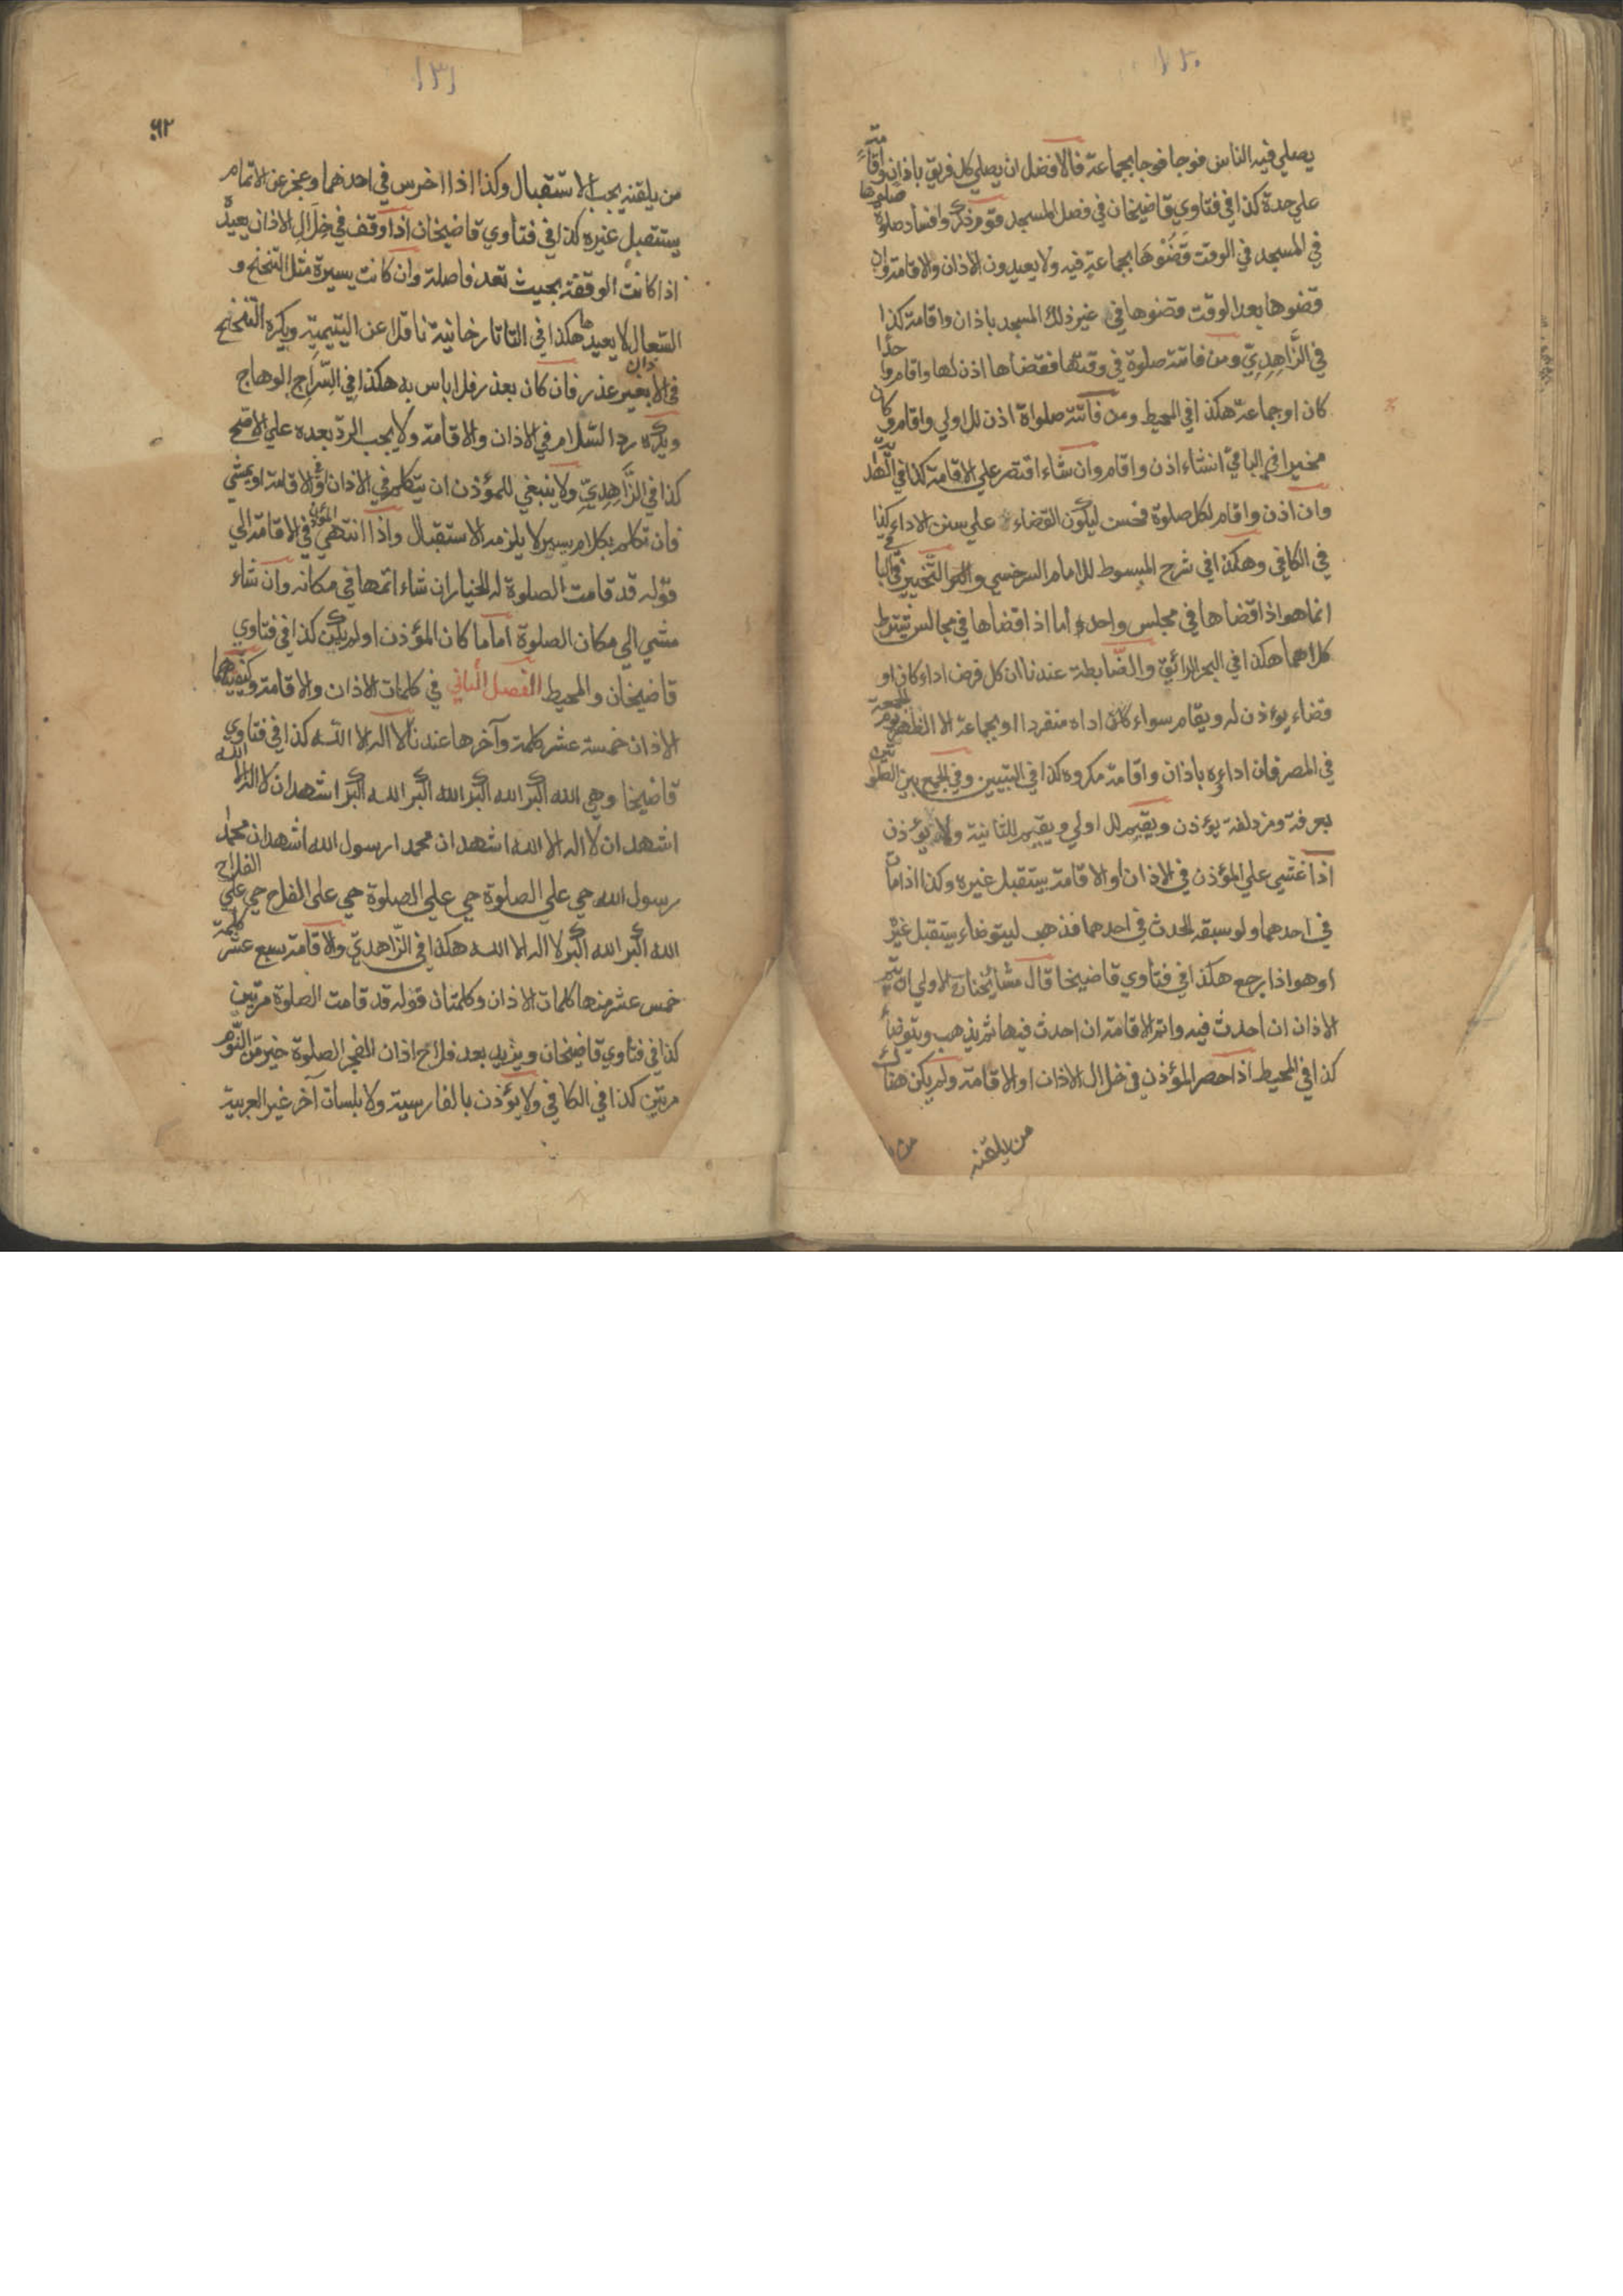 ١٣٠
يصلي فيه الناس فوجا فوجا بجماعة فالافضل ان يصلي كل فريق باذان واقامة
علي حدة كذا في فتاوي قاضيخان في فصل المسجد قوم ذكروا فساد صلوة صلوها
في المسجد في الوقت قضوها بجماعة فيه ولا يعيدون الاذان والاقامة وان
قضوها بعد الوقت قضوها في غير ذلك المسجد باذان واقامة كذا
في الزَّاهِدِيّ ومن فاتته صلوة في وقتها فقضاها اذن لها واقام واحدا
كان او جماعة هكذا في المحيط ومن فاتته صلواة اذن للاولي واقام وكان
مخيرا في الباقي انشاء اذن واقام وان شاء اقتصر علي الاقامة كذا في الهداية
وان اذن واقام لكل صلوة فحسن ليكون القضاء علي سنن الاداء كذا
في الكافي وهكذا في شرح المبسوط للامام السرخسي والتخيير في البا
انما هو اذا قضاها في مجلس واحد اما اذا قضاها في مجالس يشترط
كلاهما هكذا في البحر الرائق والضابطة عندنا ان كل فرض اداء كان او
قضاء يوءذن له ويقام سواء كان اداه منفردا او بجماعة الا الظهر يوم الجمعة
في المصر فان اداءه باذان واقامة مكروه كذا في التبيين وفي الجمع بين الصلوتين
بعرفة ومزدلفة يوءذن ويقيم للاولي ويقيم للثانية ولا يوءذن
اذا غشي علي المؤذن في الاذان او الاقامة يستقبل غيره وكذا اذا مات
في احدهما ولو سبقه الحدث في احدهما فذهب ليتوضاء يستقبل غيره
او هو اذا رجع هكذا في فتاوي قاضيخا قال مشائخنا الاولي ان يتم
الاذان ان احدث فيه واتم الاقامة ان احدث فيها ثم يذهب ويتوضأ
كذا في المحيط اذا حصر المؤذن في خلال الاذان او الاقامة ولم يكن هناك
من يلقنه
١٣١
٦٢
من يلقنه يجب الاستقبال وكذا اذا اخرس في احدهما وعجز عن الاتمام
يستقبل غيره كذا في فتاوي قاضيخان اذا وقف في خلال الاذان يعيده
اذا كانت الوقفة بحيث تعد فاصلة وان كانت يسيرة مثل التنحنح و
السعال لا يعيدها هكذا في التاتارخانية ناقلا عن اليتيمية ويكره التنحنح
في الاذان بغير عذر فان كان بعذر فلا باس به هكذا في السِّرَاج الوهاج
ويكره رد السلام في الاذان والاقامة ولا يجب الرد بعده علي الاصح
كذا في الزَّاهِدِيِّ ولا ينبغي للمؤذن ان يتكلم في الاذان وفي الاقامة او يمشي
فان تكلم بكلام يسير لا يلزمه الاستقبال واذا انتهي المؤذن في الاقامة الي
قوله قد قامت الصلوة له الخيار ان شاء اتمها في مكانه وان شاء
مشي الي مكان الصلوة اماما كان المؤذن او لم يكن كذا في فتاوي
قاضيخان والمحيط الفصل الثاني في كلمات الاذان والاقامة وكيفيتهما
الاذان خمسة عشر كلمة وآخرها عندنا لا اله الا الله كذا في فتاوي
قاضيخا وهي الله اكبر الله اكبر الله اكبر الله اكبر اشهد ان لا اله الا الله
اشهد ان لا اله الا الله اشهد ان محمدا رسول الله اشهد ان محمدا
رسول الله حي علي الصلوة حي علي الصلوة حي علي الفلاح حي علي الفلاح
الله اكبر الله اكبر لا اله الا الله هكذا في الزّاهديّ والاقامة سبع عشر كلمة
خمس عشر منها كلمات الاذان وكلمتان قوله قد قامت الصلوة مرتين
كذا في فتاوي قاضيخان ويزيد بعد فلاح اذان الفجر الصلوة خير من النَّوم
مرتين كذا في الكافي ولا يؤذن بالفارسية ولا بلسان آخر غير العربية